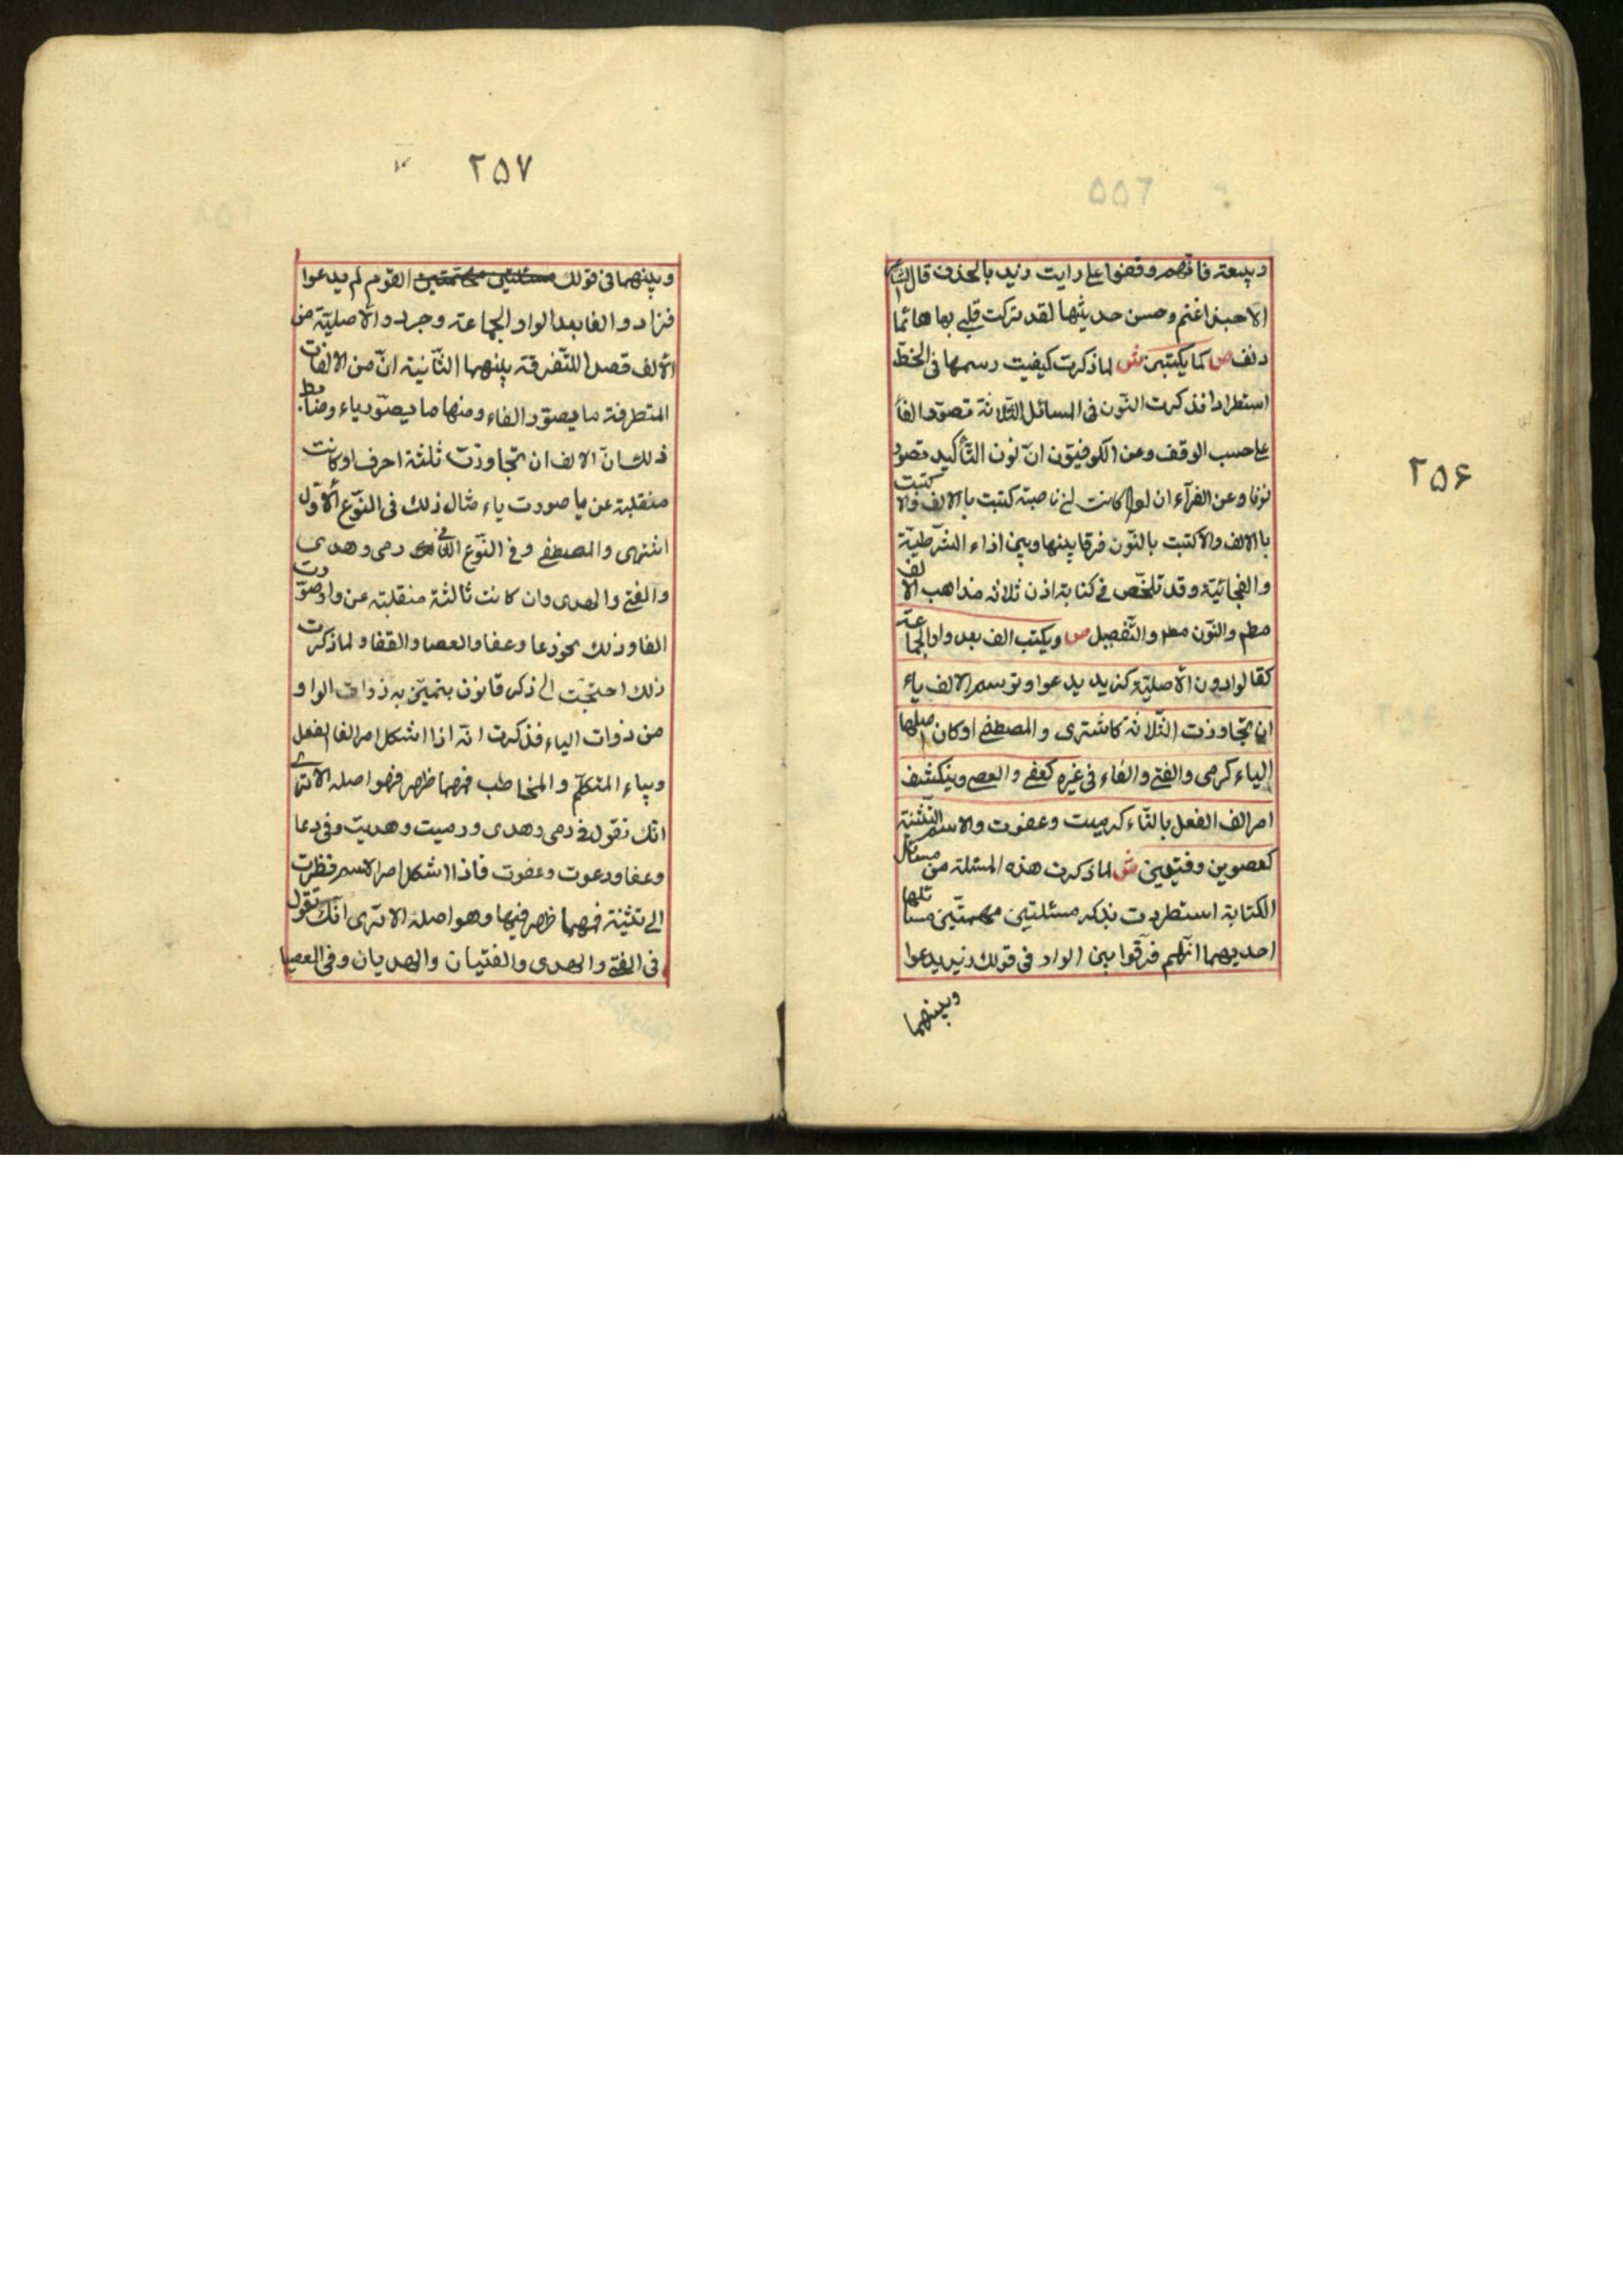 ۲۵۶
وبيعة فانهم وقفوا على رايت زيد بالحذف قال الشاعر
الا حبذا غنم وحسن حديثها لقد تركت قلبي بها هائما
دنف ص كما يكتبن ش لما ذكرت كيفيت رسمها فى الخطّ
استطرادا فذكرت النّون فى المسائل الثّلاثة تصوّر الفاً
على حسب الوقف وعن الكوفيّون انّ نون التّأكيد تصور
نونا وعن الفرآء ان اذا كانت ناصبة كتبت بالالف والا كتبت
باالالف والا كتبت بالنّون فرقا بينها وبين اذاء الشّرطيّة
والفجائيّة وقد تلخّص فى كتابة اذن ثلاثه مذاهب الالف
مطم والنّون مطم والتّفصيل ص ويكتب الف بعد واو الجماعة
كقالوا دون الأصليّة كزيد يدعوا وترسم الالف ياء
ان تجاوزت الثّلاثة كاشترى والمصطفى او كان اصلها
الياء كرمى والفتى والفاء فى غيره كعفى والعصى وينكشف
امر الف الفعل بالتّاء كرميت وعفوت والاسم بالتّثنية
كعصوين وفتيين ش لما ذكرت هذه المسئلة من مسائل
الكتابة استطردت بذكر مسئلتين مهمتّين مسا تلها
احديهما انّهم فرّقوا بين الواو فى قولك زيد يدعوا
وبينهما
۲۵۷
وبينهما فى قولك مسئلتين مهمتين القوم لم يدعوا
فزادوا الفا بعد الواو الجماعة وجرد والأصليّة من
الألف قصدا للتّفرقة بينهما الثّانية انّ من الالفات
المتطرفة ما يصوّر الفاء ومنها ما يصوّر ياء وضابط
ذلك انّ الالف ان تجاوزت ثلثة احرف او كانت
منقلبة عن يا صورت ياء مثال ذلك فى النّوع الأوّل
اشترى والمصطفى وفى النّوع الثانى رمى وهدى
والفتى والهدى وان كانت ثالثة منقلبة عن واو صوّرت
الفا وذلك نحو دعا وعفا والعصا والقفا ولما ذكرت
ذلك احتجت الى ذكر قانون يتميّز به ذوات الواو
من ذوات الياء فذكرت انّه اذا اشكل امر الفا الفعل
وبياء المتكلّم والمخاطب فمهما ظهر فهو اصله الا ترى
انّك تقول فى رمى وهدى ورميت وهديت وفى دعا
وعفا ودعوت وعفوت فاذا اشكل امر الاسم نظرت
الى تثنية فمهما ظهر فيها وهو اصله الا ترى انّك تقول
فى الفتى والهدى والفتيان والهديان وفى العصا